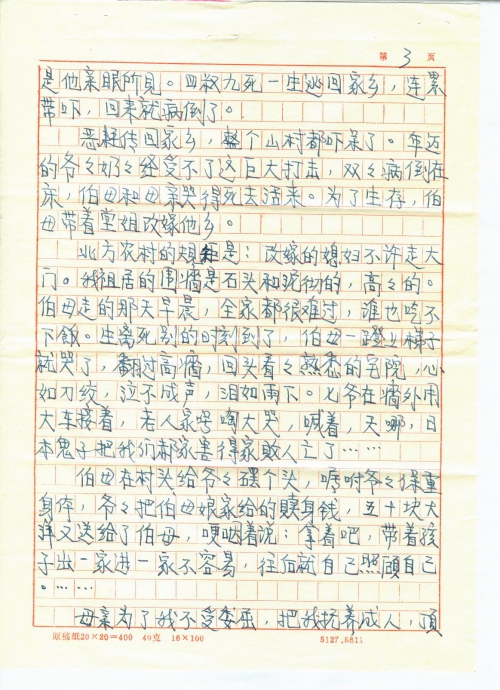 第 3 页
是他亲眼所見。四叔九死一生逃回家乡，连累
带吓，回来就病倒了。
恶耗传回家乡，整个山村都吓呆了。年迈
的爷々奶々经受不了这巨大打击，双々病倒在
床，伯母和母亲哭得死去活来。为了生存，伯
母带着堂姐改嫁他乡。
北方农村的规矩是：改嫁的媳妇不许走大
门。我祖居的围墙是石头和泥彻的，高々的。
伯母走的那天早晨，全家都很难过，谁也吃不
下飯。生离死别的时刻到了，伯母一蹬上梯子
就哭了，翻过高墙，回头看々熟悉的宅院，心
如刀绞，泣不成声，泪如雨下。七爷在墙外用
大车接着，老人家号啕大哭，喊着，天哪，日
本鬼子把我们郝家害得家败人亡了……
伯母在村头给爷々磕个头，嘱咐爷々保重
身体，爷々把伯母娘家给的赎身钱，五十块大
洋又送给了伯母，哽咽着说：拿着吧，带着孩
子出一家进一家不容易，往后就自己照顾自己
。……
母亲为了我不受委屈，把我抚养成人，顶
原稿纸20×20=400 40克 16×100 5127.8811